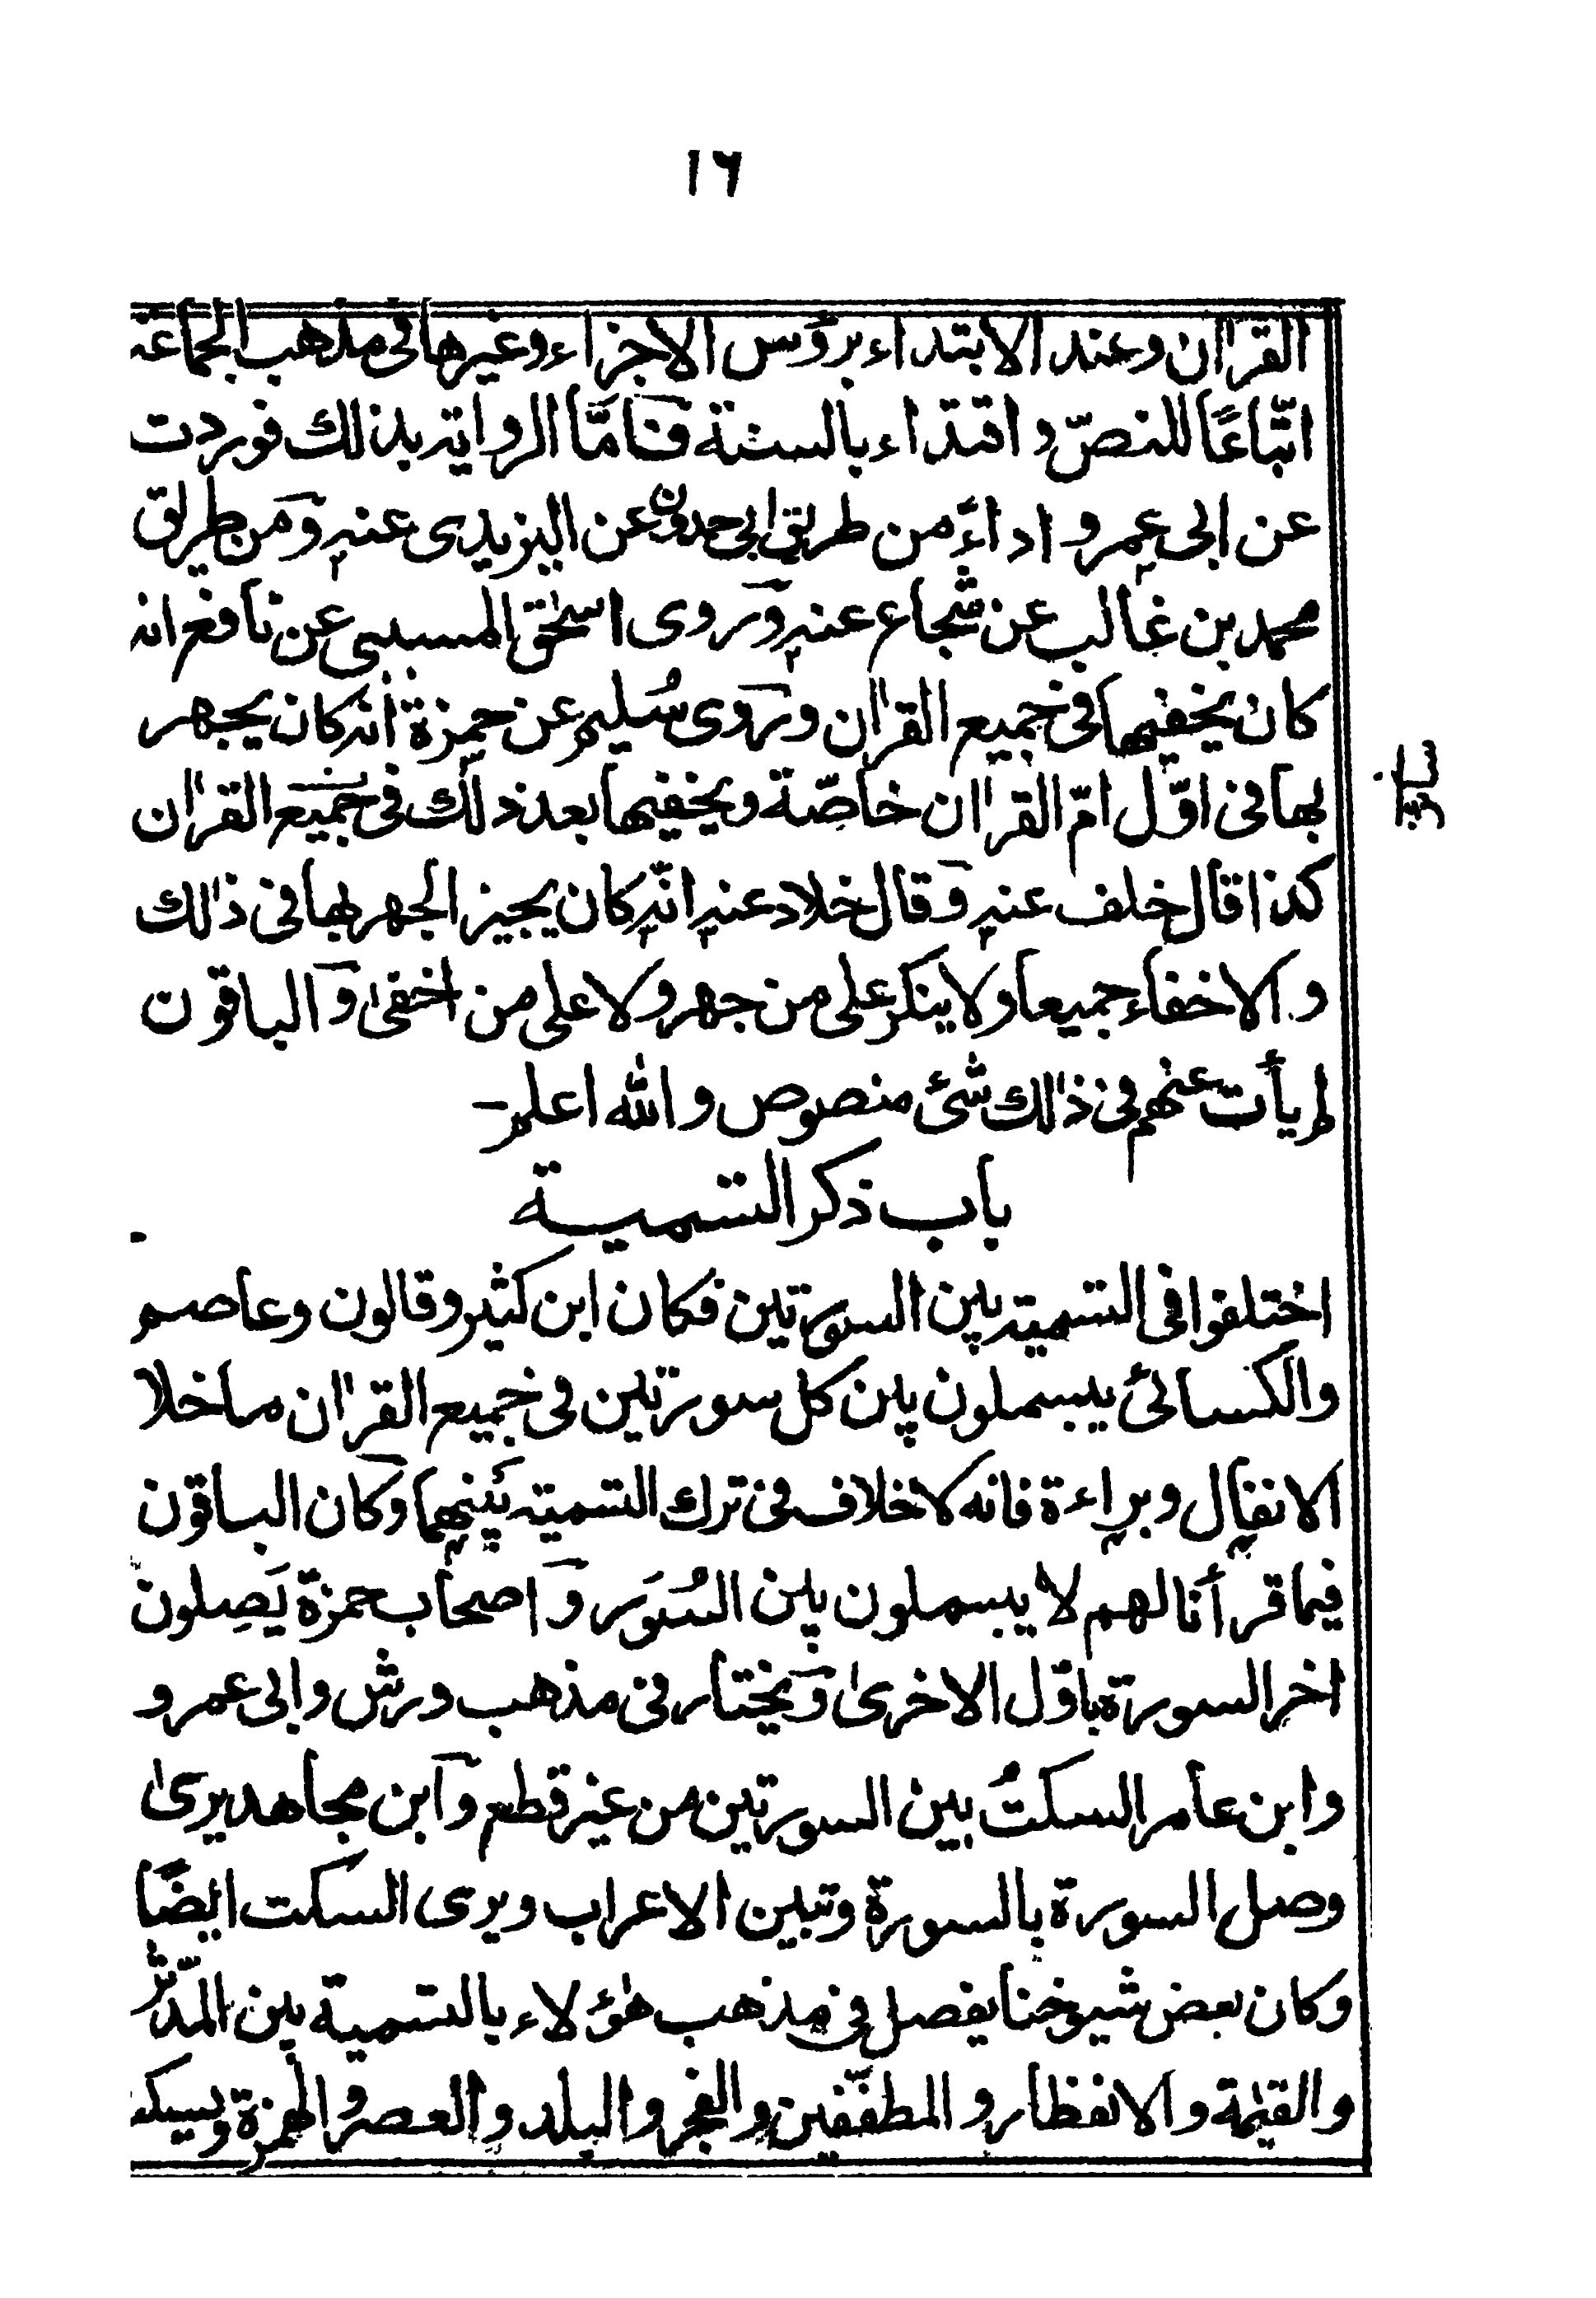 ١٦
القراٰن وعند الابتداء برؤس الاجزاء وغيرها فى مذهب الجماعة
اتّباعًا للنصّ واقتداء بالسنة فامّا الرواية بذلك فوردت
عن ابى عمرو اداءً من طريق ابى حمدون عن اليزيدى عنه ومن طريق
محمد بن غالب عن شجاع عنه وروى اسحٰق المسيبى عن نافع انه
كان يخفيها فى جميع القراٰن وروى سُليم عن حمزة انّه كان يجهر
بها فى اوّل امّ القراٰن خاصّة ويخفيها بعد ذلك فى جميع القراٰن
كذا قال خلف عنه وقال خلاد عنه انّه كان يجيز الجهر بها فى ذٰلك
والاخفاء جميعا ولا ينكر على من جهر ولا على من اخفىٰ والباقون
لم يأت عنهم فى ذٰلك شئ منصوص والله اعلم-
باب ذكر التسمية
اختلفوا فى التسمية بين السورتين فكان ابن كثير وقالون وعاصم
والكسائى يبسملون بين كل سورتين فى جميع القراٰن ما خلا
الانفال وبراءة فانه لا خلاف فى ترك التسمية بينهما وكان الباقون
فيما قرأنا لهم لا يبسملون بين السُوَر واصحاب حمزة يَصِلون
اٰخر السورة باوّل الاخرىٰ ويختار فى مذهب ورش وابى عمرو
وابن عامر السكتُ بين السورتين من غير قطع وابن مجاهد يرىٰ
وصل السورة بالسورة وتبين الاعراب ويرى السكت ايضًا
وكان بعض شيوخنا يفصل فى مذهب هٰؤلاء بالتسمية بين المدّثر
والقيٰمة والانفطار والمطفّفين والفجر والبلد والعصر والهمزة ويسكت